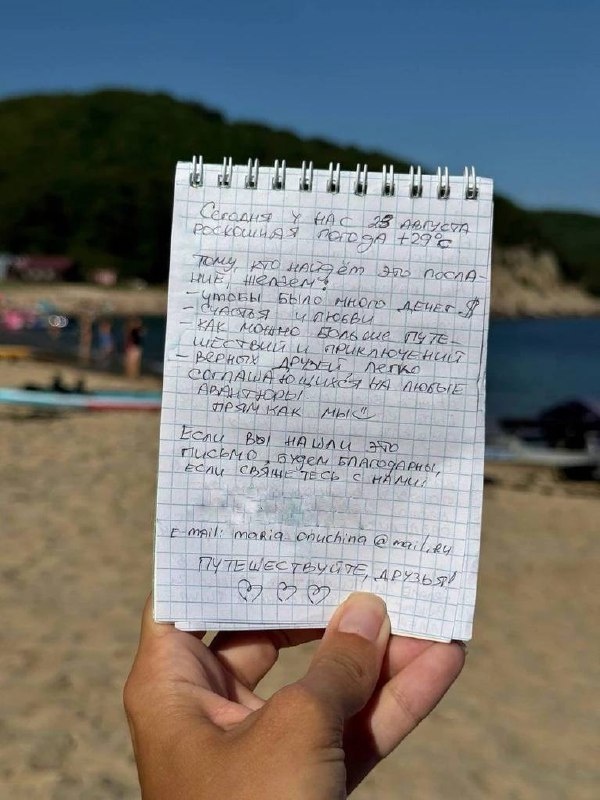 Сегодня у нас 23 августа
роскошная погода +29°С
Тому, кто найдём это посла-
ние, желаем:
- чтобы было много денег $
- счастья и любви
- как можно больше путе-
шествий и приключений
- верных друзей, легко
соглашающихся на любые
авантюры
прям как мы
Если вы нашли это
письмо, будем благодарны,
если свяжетесь с нами:
E-mail: maria_onuchina@mail.ru
Путешествуйте, друзья!